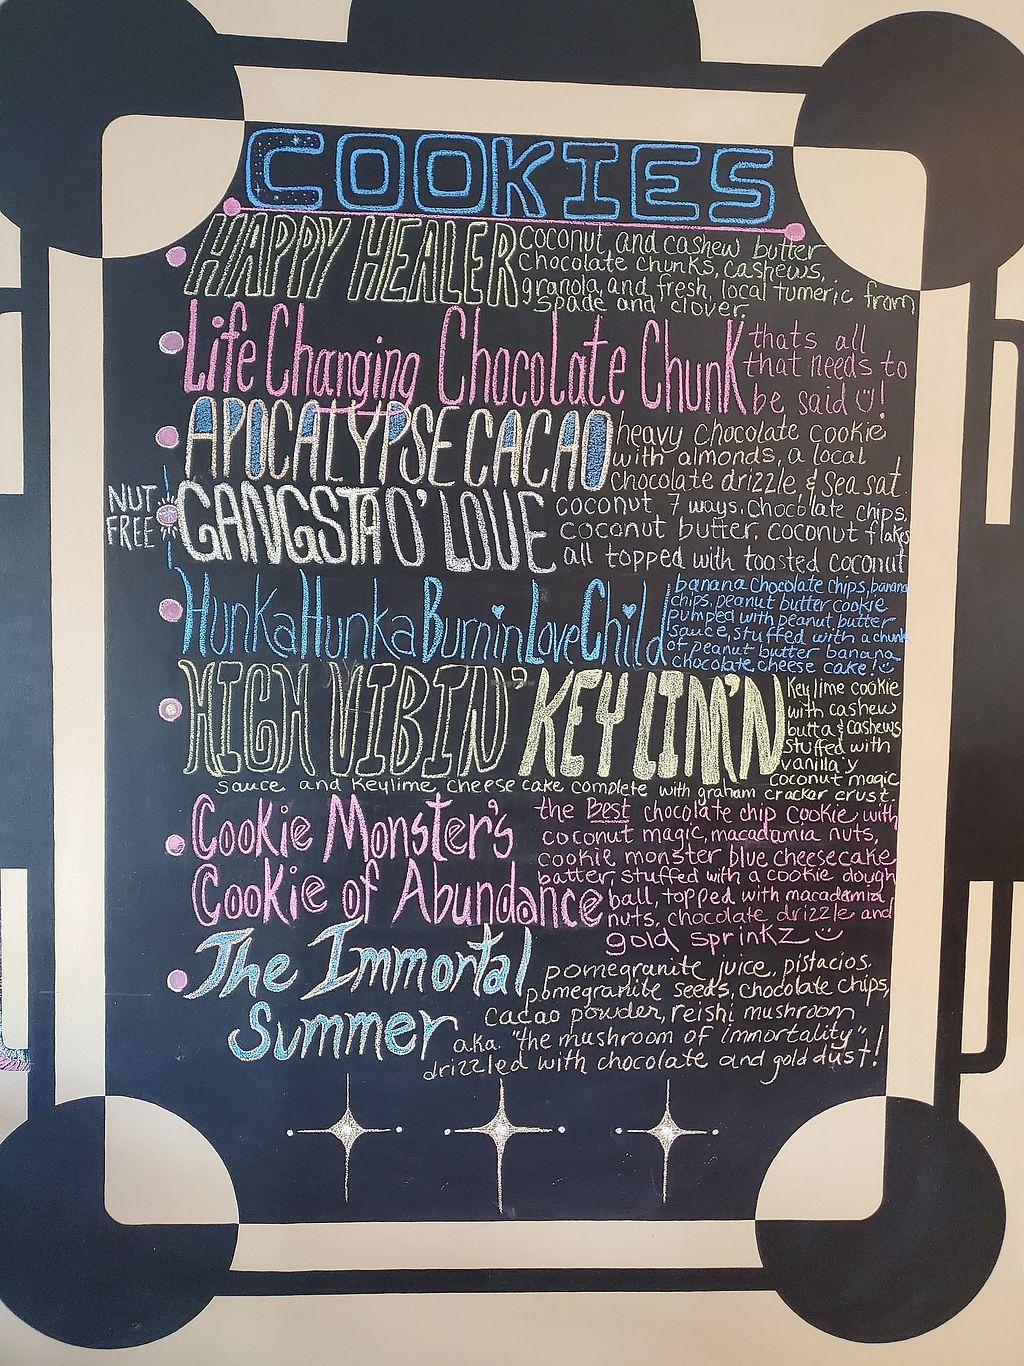 COOKIES
HAPPY HEALER coconut and cashew butter
chocolate chunks, cashews,
granola, and fresh, local tumeric from
spade and clover.
Life Changing Chocolate Chunk thats all
that needs to
be said !
APOCALYPSE CACAO heavy chocolate cookie
with almonds, a local
chocolate drizzle, & Sea salt.
NUT FREE
GANGSTA O' LOVE coconut 7 ways. Chocolate chips,
coconut butter, coconut flakes
all topped with toasted coconut
HunkaHunkaBurninLoveChild banana chocolate chips, banana
chips, peanut butter cookie
pumped with peanut butter
sauce, stuffed with a chunk
of peanut butter banana
chocolate cheese cake!
HIGH VIBIN' KEY LIM'N Key lime cookie
with cashew
butta & cashews
stuffed with
vanilla'y
coconut magic
sauce and Keylime cheese cake complete with graham cracker crust.
Cookie Monster's the Best chocolate chip cookie with
coconut magic, macadamia nuts,
cookie monster blue cheesecake
Cookie of Abundance batter, stuffed with a cookie dough
ball, topped with macadamia
nuts, chocolate drizzle and
gold sprinkz
The Immortal pomegranite juice, pistacios,
pomegranite seeds, chocolate chips,
Summer cacao powder, reishi mushroom
a.k.a. "the mushroom of immortality",
drizzled with chocolate and gold dust!